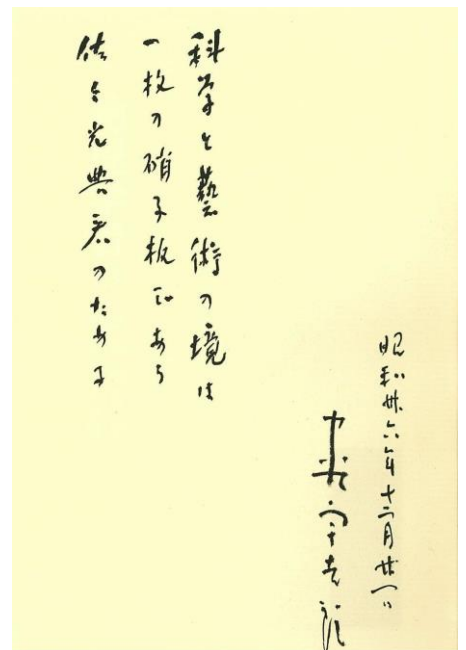 科学と藝術の境は
一枚の硝子板である
光典君のために
昭和卅六年十二月廿一日
中谷宇吉郎